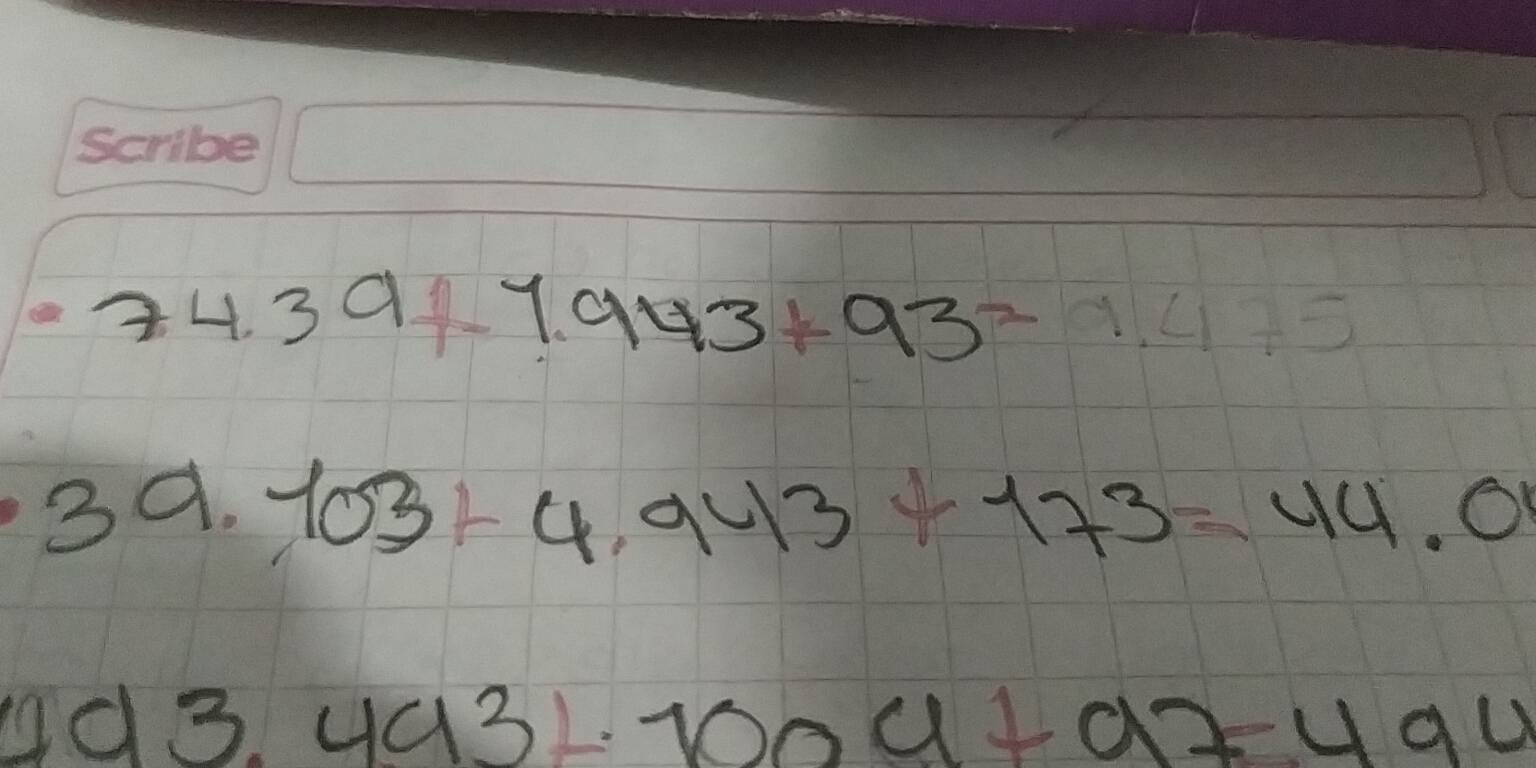 Scribe
7.4.39+1.943+93=9.475
39.103+4.943+173=44.0
993.493+1009+97=494